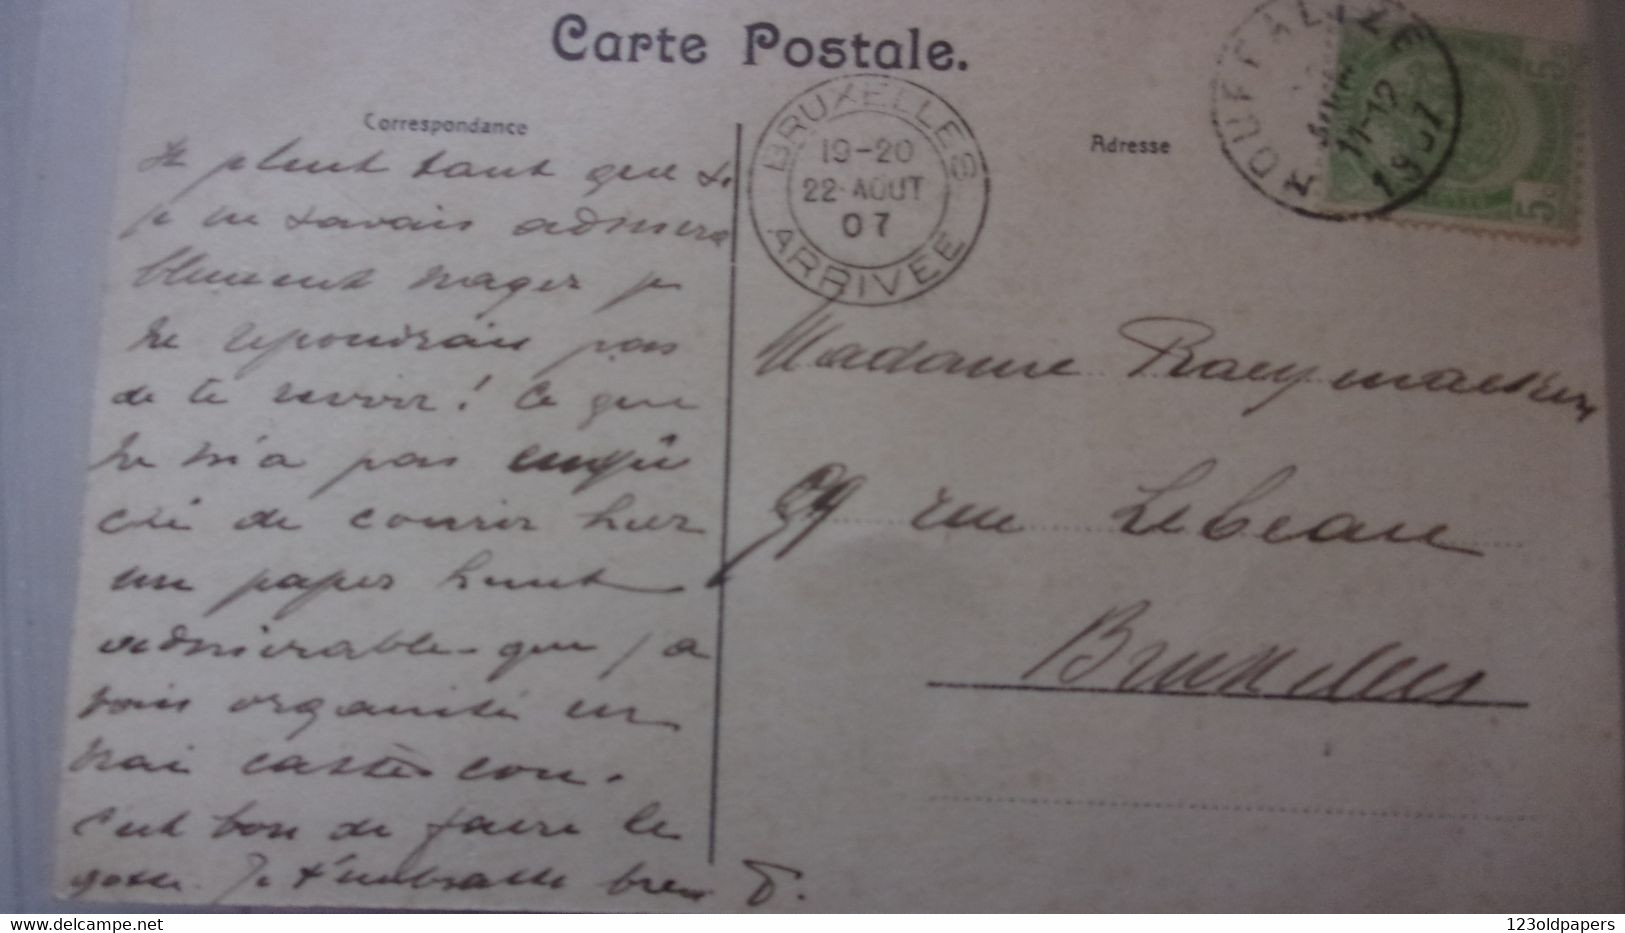 Carte Postale.
Correspondance
Adresse
BRUXELLES
19-20
22 AOUT
07
ARRIVEE
HOUFFALIZE
11-12
1907
5
5
Il pleut tant que si
je ne savais admira
blement nager je
ne répondrais pas
de te revoir! Ce que
ne m'a pas empê
ché de courir hier
un paper hunt
admirable que j'a
vais organisé en
vrai casse-cou.
C'est bon de faire le
gosse. Je t'embrasse bien
Madame Raeymaekers
59 rue Lebeau
Bruxelles
22/05/2022
123oldpapers